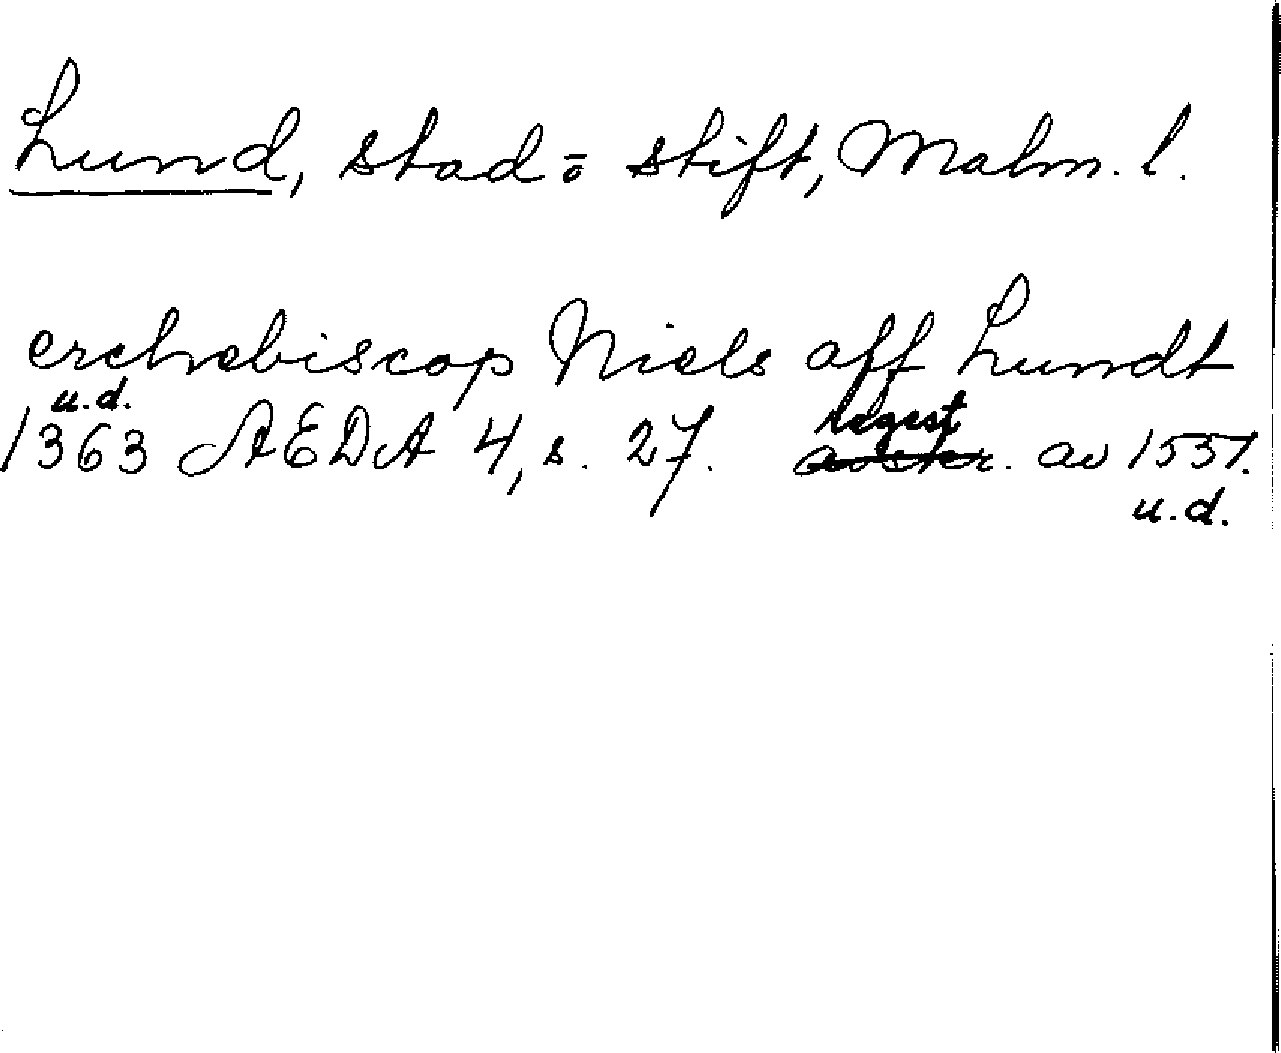 Lund, stad o stift, Malm. l.
erchebiscop Niels aff Lundt
u.d.
regest
1363 AEDA 4, s. 27. avskr. av 1537.
u.d.